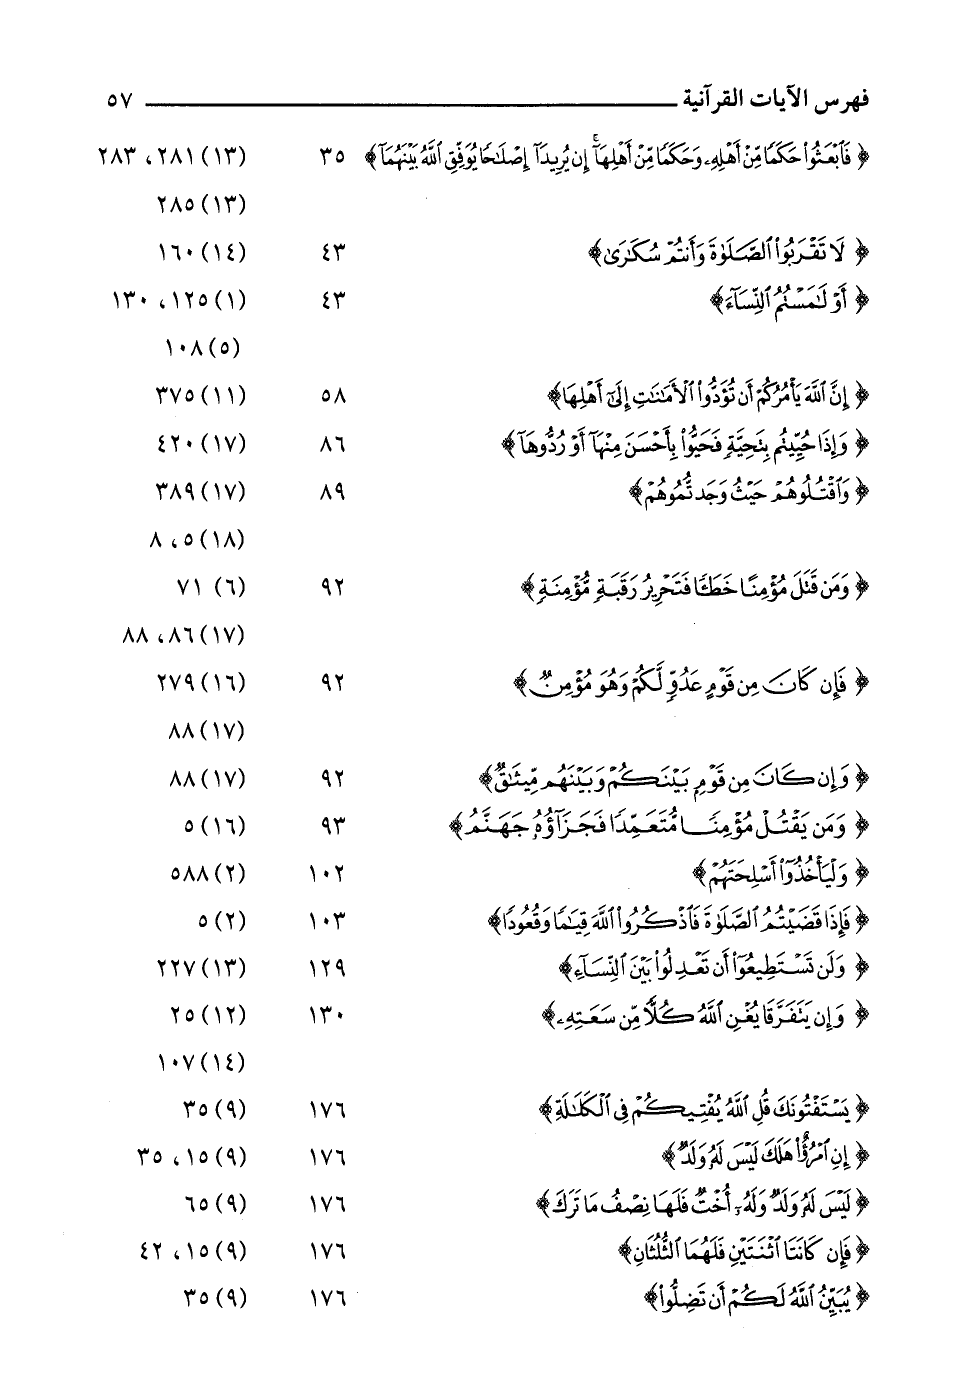 فهرس الآيات القرآنية ٥٧
﴿ فَٱبْعَثُوا۟ حَكَمًا مِّنْ أَهْلِهِۦ وَحَكَمًا مِّنْ أَهْلِهَآ ۚ إِن يُرِيدَآ إِصْلَٰحًا يُوَفِّقِ ٱللَّهُ بَيْنَهُمَآ ﴾ ٣٥ (١٣) ٢٨١، ٢٨٣
(١٣) ٢٨٥
﴿ لَا تَقْرَبُوا۟ ٱلصَّلَوٰةَ وَأَنتُمْ سُكَٰرَىٰ ﴾ ٤٣ (١٤) ١٦٠
﴿ أَوْ لَٰمَسْتُمُ ٱلنِّسَآءَ ﴾ ٤٣ (١) ١٢٥، ١٣٠
(٥) ١٠٨
﴿ إِنَّ ٱللَّهَ يَأْمُرُكُمْ أَن تُؤَدُّوا۟ ٱلْأَمَٰنَٰتِ إِلَىٰٓ أَهْلِهَا ﴾ ٥٨ (١١) ٣٧٥
﴿ وَإِذَا حُيِّيتُم بِتَحِيَّةٍ فَحَيُّوا۟ بِأَحْسَنَ مِنْهَآ أَوْ رُدُّوهَآ ﴾ ٨٦ (١٧) ٤٢٠
﴿ وَٱقْتُلُوهُمْ حَيْثُ وَجَدتُّمُوهُمْ ﴾ ٨٩ (١٧) ٣٨٩
(١٨) ٥، ٨
﴿ وَمَن قَتَلَ مُؤْمِنًا خَطَـًٔا فَتَحْرِيرُ رَقَبَةٍ مُّؤْمِنَةٍ ﴾ ٩٢ (٦) ٧١
(١٧) ٨٦، ٨٨
﴿ فَإِن كَانَ مِن قَوْمٍ عَدُوٍّ لَّكُمْ وَهُوَ مُؤْمِنٌ ﴾ ٩٢ (١٦) ٢٧٩
(١٧) ٨٨
﴿ وَإِن كَانَ مِن قَوْمٍۭ بَيْنَكُمْ وَبَيْنَهُم مِّيثَٰقٌ ﴾ ٩٢ (١٧) ٨٨
﴿ وَمَن يَقْتُلْ مُؤْمِنًا مُّتَعَمِّدًا فَجَزَآؤُهُۥ جَهَنَّمُ ﴾ ٩٣ (١٦) ٥
﴿ وَلْيَأْخُذُوٓا۟ أَسْلِحَتَهُمْ ﴾ ١٠٢ (٢) ٥٨٨
﴿ فَإِذَا قَضَيْتُمُ ٱلصَّلَوٰةَ فَٱذْكُرُوا۟ ٱللَّهَ قِيَٰمًا وَقُعُودًا ﴾ ١٠٣ (٢) ٥
﴿ وَلَن تَسْتَطِيعُوٓا۟ أَن تَعْدِلُوا۟ بَيْنَ ٱلنِّسَآءِ ﴾ ١٢٩ (١٣) ٢٢٧
﴿ وَإِن يَتَفَرَّقَا يُغْنِ ٱللَّهُ كُلًّا مِّن سَعَتِهِۦ ﴾ ١٣٠ (١٢) ٢٥
(١٤) ١٠٧
﴿ يَسْتَفْتُونَكَ قُلِ ٱللَّهُ يُفْتِيكُمْ فِى ٱلْكَلَٰلَةِ ﴾ ١٧٦ (٩) ٣٥
﴿ إِنِ ٱمْرُؤٌا۟ هَلَكَ لَيْسَ لَهُۥ وَلَدٌ ﴾ ١٧٦ (٩) ١٥، ٣٥
﴿ لَيْسَ لَهُۥ وَلَدٌ وَلَهُۥٓ أُخْتٌ فَلَهَا نِصْفُ مَا تَرَكَ ﴾ ١٧٦ (٩) ٦٥
﴿ فَإِن كَانَتَا ٱثْنَتَيْنِ فَلَهُمَا ٱلثُّلُثَانِ ﴾ ١٧٦ (٩) ١٥، ٤٢
﴿ يُبَيِّنُ ٱللَّهُ لَكُمْ أَن تَضِلُّوا۟ ﴾ ١٧٦ (٩) ٣٥